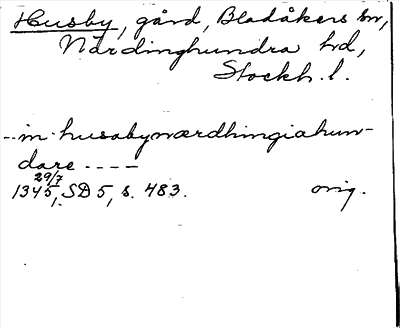 Husby, gård, Bladåkers sn,
Närdinghundra hd,
Stockh. l.
-- in husabynærdhingiahun-
dare ----
29/7
1345, SD 5, s. 483. orig.